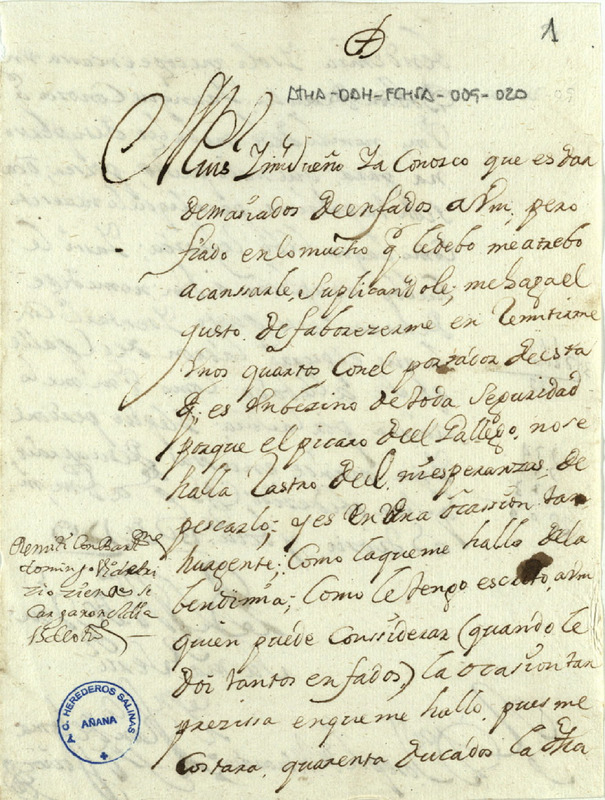 1
ATHA-DAH-FCHSA-009-020
Muis Zmi dueño Ya Conosco que es dar
demasiados de enfados a Vm. pero
fiado en lo mucho q. le debo me atrebo
a canssarle, Suplicandole, me haga el
gusto de faborezerme en Remitirme
Unos quartos Con el portador de esta
q. es Un bezino de toda Seguridad
porque el picaro del Gallego, no se
halla Rastro del ni esperanzas, de
pescarlo; y es en Una Ocassion tan
hurgente: Como la que me hallo de la
bendimia; Como le tengo escrito, a Vm
quien puede Conssiderar (quando le
doi tantos enfados) la ocassion tan
prezissa en que me hallo, pues me
Costara, quarenta ducados la otra
Remiti Con
domingo
ziende
Cargaron
A. C. HEREDEROS SALINAS
AÑANA